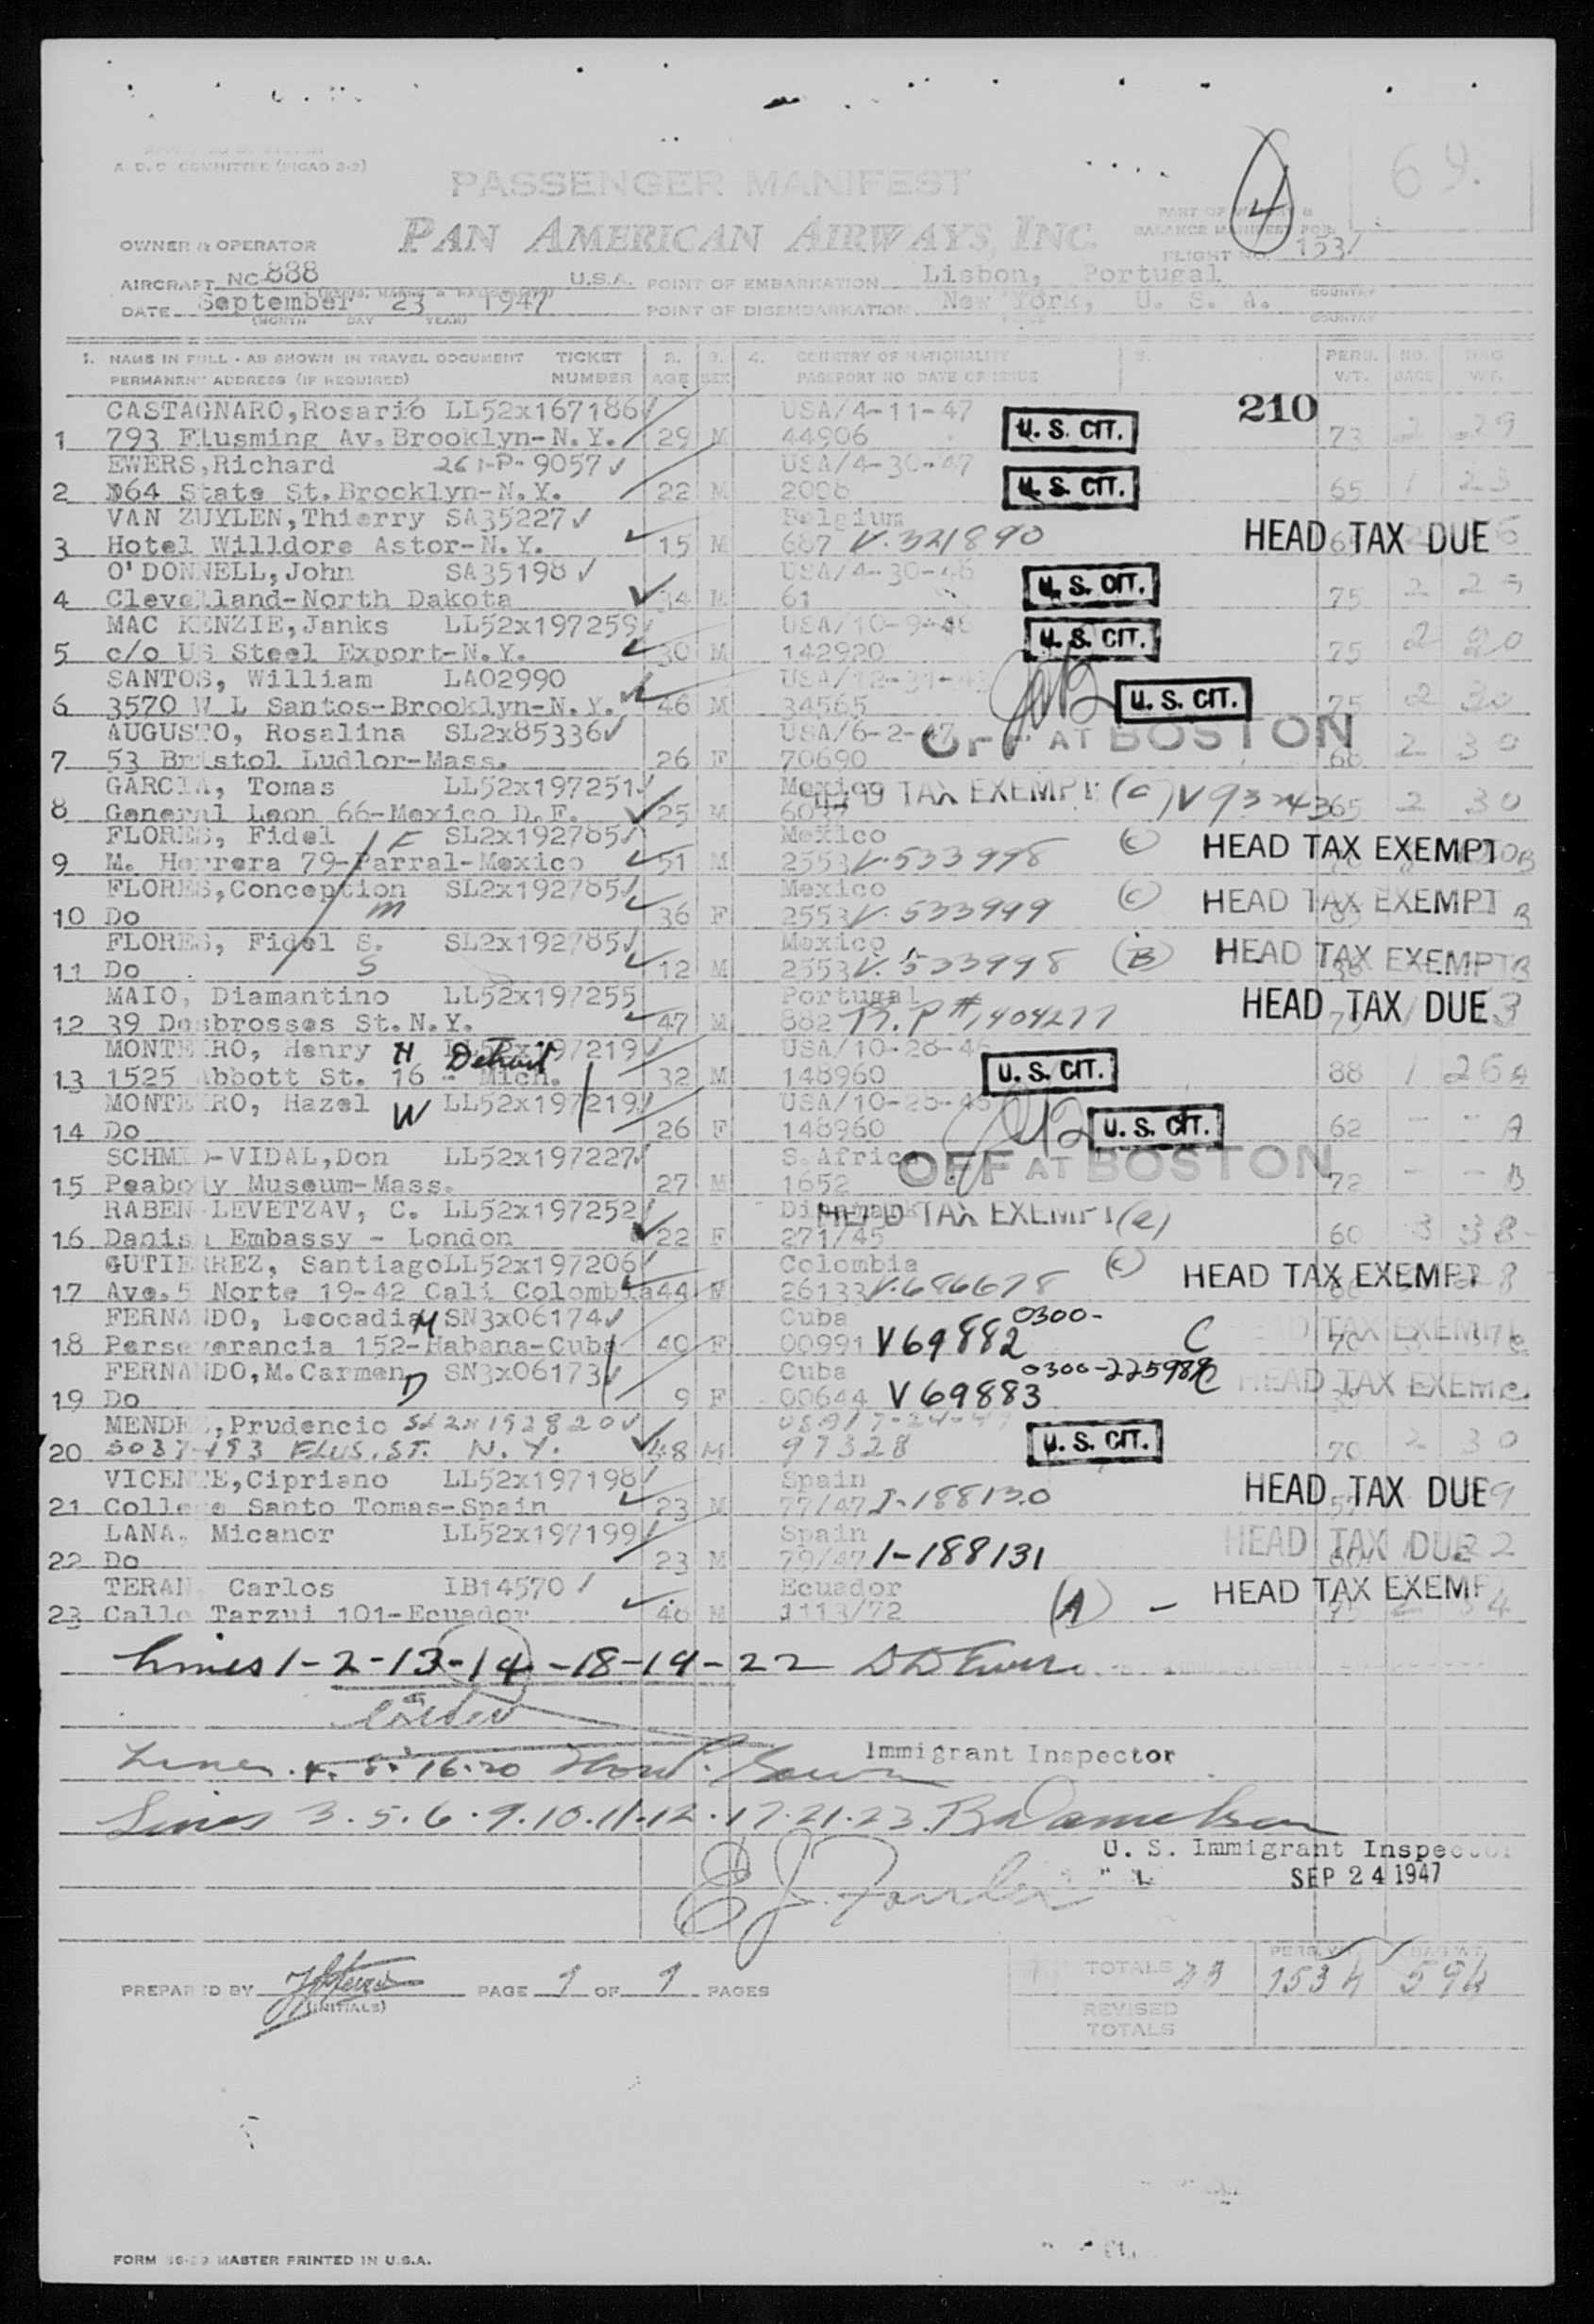 A. D. C COMMITTEE (PICAO 2-2)
PASSENGER MANIFEST
4
69.
PAN AMERICAN AIRWAYS, INC.
OWNER & OPERATOR
FLIGHT NO. 153/
AIRCRAFT NC-888 U.S.A. POINT OF EMBARKATION Lisbon, Portugal
COUNTRY
DATE September 23 1947 POINT OF DISEMBARKATION New York, U. S. A.
(MONTH DAY YEAR) COUNTRY
1. NAME IN FULL - AS SHOWN IN TRAVEL DOCUMENT TICKET 2. 3. 4. COUNTRY OF NATIONALITY 5. PERS. NO. BAG
PERMANENT ADDRESS (IF REQUIRED) NUMBER AGE SEX PASSPORT NO DATE OF ISSUE WT. BAGS WT.
CASTAGNARO,Rosario LL52x167186 USA/4-11-47 210
1 793 Flusming Av.Brooklyn-N.Y. 29 M 44906 U. S. CIT. 73 2 29
EWERS,Richard 261-P-9057 USA/4-30-47
2 364 State St.Brooklyn-N.Y. 22 M 2006 U. S. CIT. 65 1 23
VAN ZUYLEN,Thierry SA35227 Belgium
3 Hotel Willdore Astor-N.Y. 15 M 687 V.321890 HEAD TAX DUE
O'DONNELL,John SA35198 USA/4-30-46
4 Clevelland-North Dakota 34 M 61 U. S. CIT. 75 2
MAC KENZIE,Janks LL52x197259 USA/10-9-46
5 c/o US Steel Export-N.Y. 30 M 142920 U. S. CIT. 75 2 20
SANTOS, William LA02990 USA/12-31-
6 3570 W L Santos-Brooklyn-N.Y. 46 M 34565 U. S. CIT. 75 2 30
AUGUSTO, Rosalina SL2x85336 USA/6-2-47 OFF AT BOSTON
7 53 Bristol Ludlor-Mass. 26 F 70690 68 2 30
GARCIA, Tomas LL52x197251 Mexico HEAD TAX EXEMPT (c) V93243
8 General Leon 66-Mexico D.F. 25 M 6037 65 2 30
FLORES, Fidel F SL2x192785 Mexico
9 M. Herrera 79-Parral-Mexico 51 M 2553 V.533998 (c) HEAD TAX EXEMPT
FLORES,Conception SL2x192785 Mexico
10 Do m 36 F 2553 V.533999 (c) HEAD TAX EXEMPT B
FLORES, Fidel S. SL2x192785 Mexico
11 Do S 12 M 2553 V.533998 (B) HEAD TAX EXEMPT B
MAIO, Diamantino LL52x197255 Portugal
12 39 Desbrosses St.N.Y. 47 M 882 R.P #1404277 HEAD TAX DUE
MONTEIRO, Henry H LL52x197219 USA/10-28-46
13 1525 Abbott St. 16 - Mich. Detroit 32 M 148960 U. S. CIT. 88 1 26 A
MONTEIRO, Hazel W LL52x197219 USA/10-28-46
14 Do 26 F 148960 U. S. CIT. 62 - - A
SCHMID-VIDAL,Don LL52x197227 S.Africa OFF AT BOSTON
15 Peabody Museum-Mass. 27 M 1652 72 - - B
RABEN-LEVETZAV, C. LL52x197252 HEAD TAX EXEMPT (a)
16 Danish Embassy - London 22 F 271/45 60 3 38
GUTIERREZ, Santiago LL52x197206 Colombia
17 Ave.5 Norte 19-42 Cali Colombia 44 M 26133 V.686678 (c) HEAD TAX EXEMPT
FERNANDO, Leocadia M SN3x06174 Cuba 0300-
18 Perseverancia 152-Habana-Cuba 40 F 00991 V69882 C HEAD TAX EXEMPT
FERNANDO,M.Carmen D SN3x06173 Cuba 0300-225989
19 Do 9 F 00644 V69883 HEAD TAX EXEMPT
MENDEZ,Prudencio SL2x152820 USA/7-24-47
20 FLUS. ST. N. Y. 48 M 97328 U. S. CIT. 70 2 30
VICENTE,Cipriano LL52x197198 Spain
21 College Santo Tomas-Spain 23 M 77/47 I-188130 HEAD TAX DUE
LANA, Micanor LL52x197199 Spain
22 Do 23 M 79/47 I-188131 HEAD TAX DUE
TERAN Carlos IB14570 Ecuador
23 Calle Tarzui 101-Ecuador 48 M 1113/72 (A) - HEAD TAX EXEMPT
Lines 1-2-13-14-18-19-22
Immigrant Inspector
Lines 4. 8. 16.20
Lines 3.5.6.9.10.11.12.17.21.23.
U. S. Immigrant Inspector
SEP 24 1947
PREPARED BY PAGE 1 OF 1 PAGES
(INITIALS)
TOTALS 23 1534 594
REVISED
TOTALS
FORM MASTER PRINTED IN U.S.A.